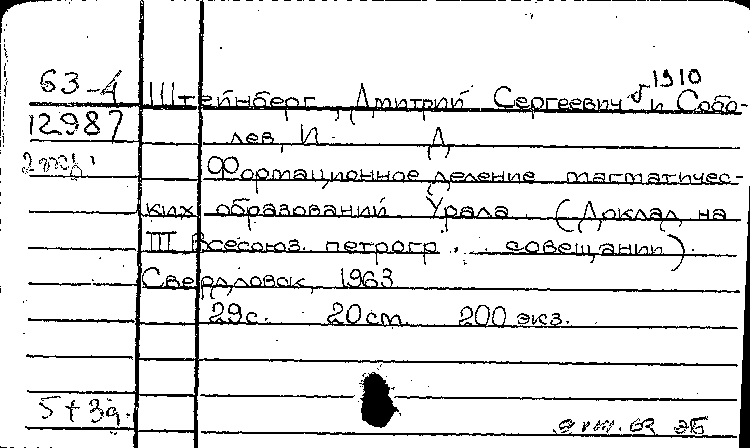 1910
63-4 Штейнберг, Дмитрий Сергеевич и Собо-
12987 лев, И. Д.
2 экз. Формационное деление магматичес-
ких образований Урала. (Доклад на
III Всесоюз. петрогр. совещании).
Свердловск, 1963
29с. 20см. 200 экз.
5+3д.